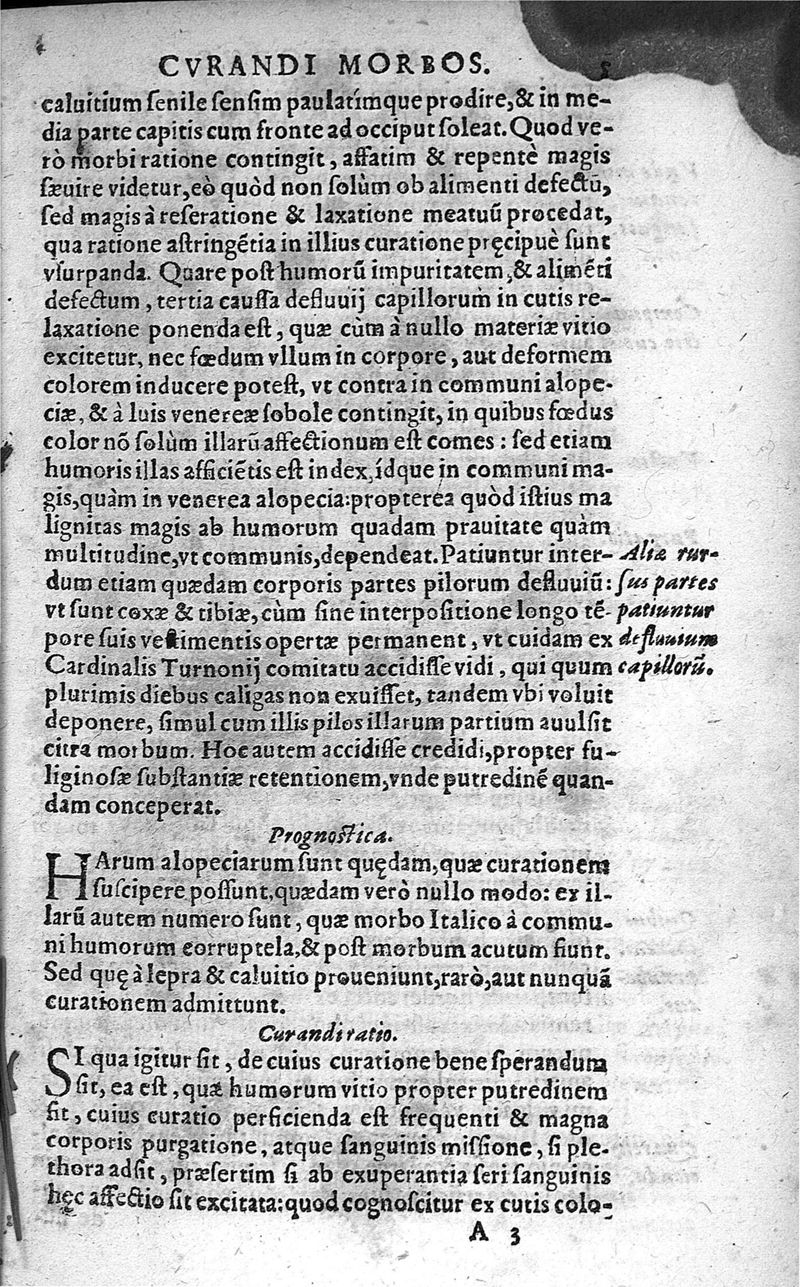 CVRANDI MORBOS. 5
caluitium ſenile ſenſim paulatímque prodire,& in me-
dia parte capitis cum fronte ad occiput ſoleat. Quod ve-
rò morbi ratione contingit, affatim & repentè magis
ſæuire videtur, eò quòd non ſolùm ob alimenti defectū,
ſed magis à reſeratione & laxatione meatuū procedat,
qua ratione aſtringētia in illius curatione pręcipuè ſunt
vſurpanda. Quare poſt humorū impuritatem, & alimēti
defectum, tertia cauſſa defluuij capillorum in cutis re-
laxatione ponenda eſt, quæ cùm à nullo materiæ vitio
excitetur, nec fœdum vllum in corpore, aut deformem
colorem inducere poteſt, vt contra in communi alope-
ciæ, & à luis venereæ ſobole contingit, in quibus fœdus
color nō ſolùm illarū affectionum eſt comes: ſed etiam
humoris illas afficiētis eſt index, ídque in communi ma-
gis, quàm in venerea alopecia: propterea quòd iſtius ma
lignitas magis ab humorum quadam prauitate quàm
multitudine, vt communis, dependeat. Patiuntur inter-
dum etiam quædam corporis partes pilorum defluuiū:
vt ſunt coxæ & tibiæ, cùm ſine interpoſitione longo tē-
pore ſuis veſtimentis opertæ permanent, vt cuidam ex
Cardinalis Turnonij comitatu accidiſſe vidi, qui quum
plurimis diebus caligas non exuiſſet, tandem vbi voluit
deponere, ſimul cum illis pilos illarum partium auulſit
citra morbum. Hoc autem accidiſſe credidi, propter fu-
liginoſæ ſubſtantiæ retentionem, vnde putredinē quan-
dam conceperat.
Aliæ rur-
ſus partes
patiuntur
defluuium
capillorū.
Prognoſtica.
HArum alopeciarum ſunt quędam, quæ curationem
ſuſcipere poſſunt, quædam verò nullo modo: ex il-
larū autem numero ſunt, quæ morbo Italico à commu-
ni humorum corruptela, & poſt morbum acutum fiunt.
Sed quę à lepra & caluitio proueniunt, rarò, aut nunquā
curationem admittunt.
Curandi ratio.
SI qua igitur ſit, de cuius curatione bene ſperandum
ſit, ea eſt, quæ humorum vitio propter putredinem
fit, cuius curatio perficienda eſt frequenti & magna
corporis purgatione, atque ſanguinis miſſione, ſi ple-
thora adſit, præſertim ſi ab exuperantia ſeri ſanguinis
hęc affectio ſit excitata: quod cognoſcitur ex cutis colo-
A 3